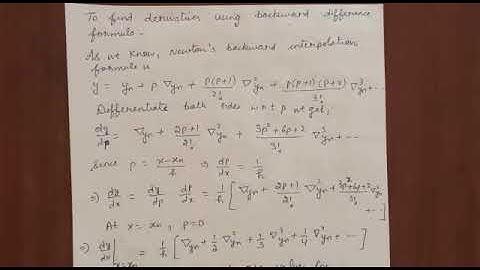 To find derivatives using backward difference
formula -
As we know, Newton's backward interpolation
formula is
y = yn + p ∇yn + p(p+1)/2! ∇²yn + p(p+1)(p+2)/3! ∇³yn + --
Differentiate both sides w.r.t p we get,
dy/dp = ∇yn + 2p+1/2! ∇²yn + 3p²+6p+2/3! ∇³yn + --
Since p = x-xn/h ⇒ dp/dx = 1/h
⇒ dy/dx = dy/dp dp/dx = 1/h [∇yn + 2p+1/2! ∇²yn + 3p²+6p+2/3! ∇³yn + --]
At x = xn, p=0
⇒ dy/dx|x=xn = 1/h [∇yn + 1/2 ∇²yn + 1/3 ∇³yn + 1/4 ∇⁴yn + --]